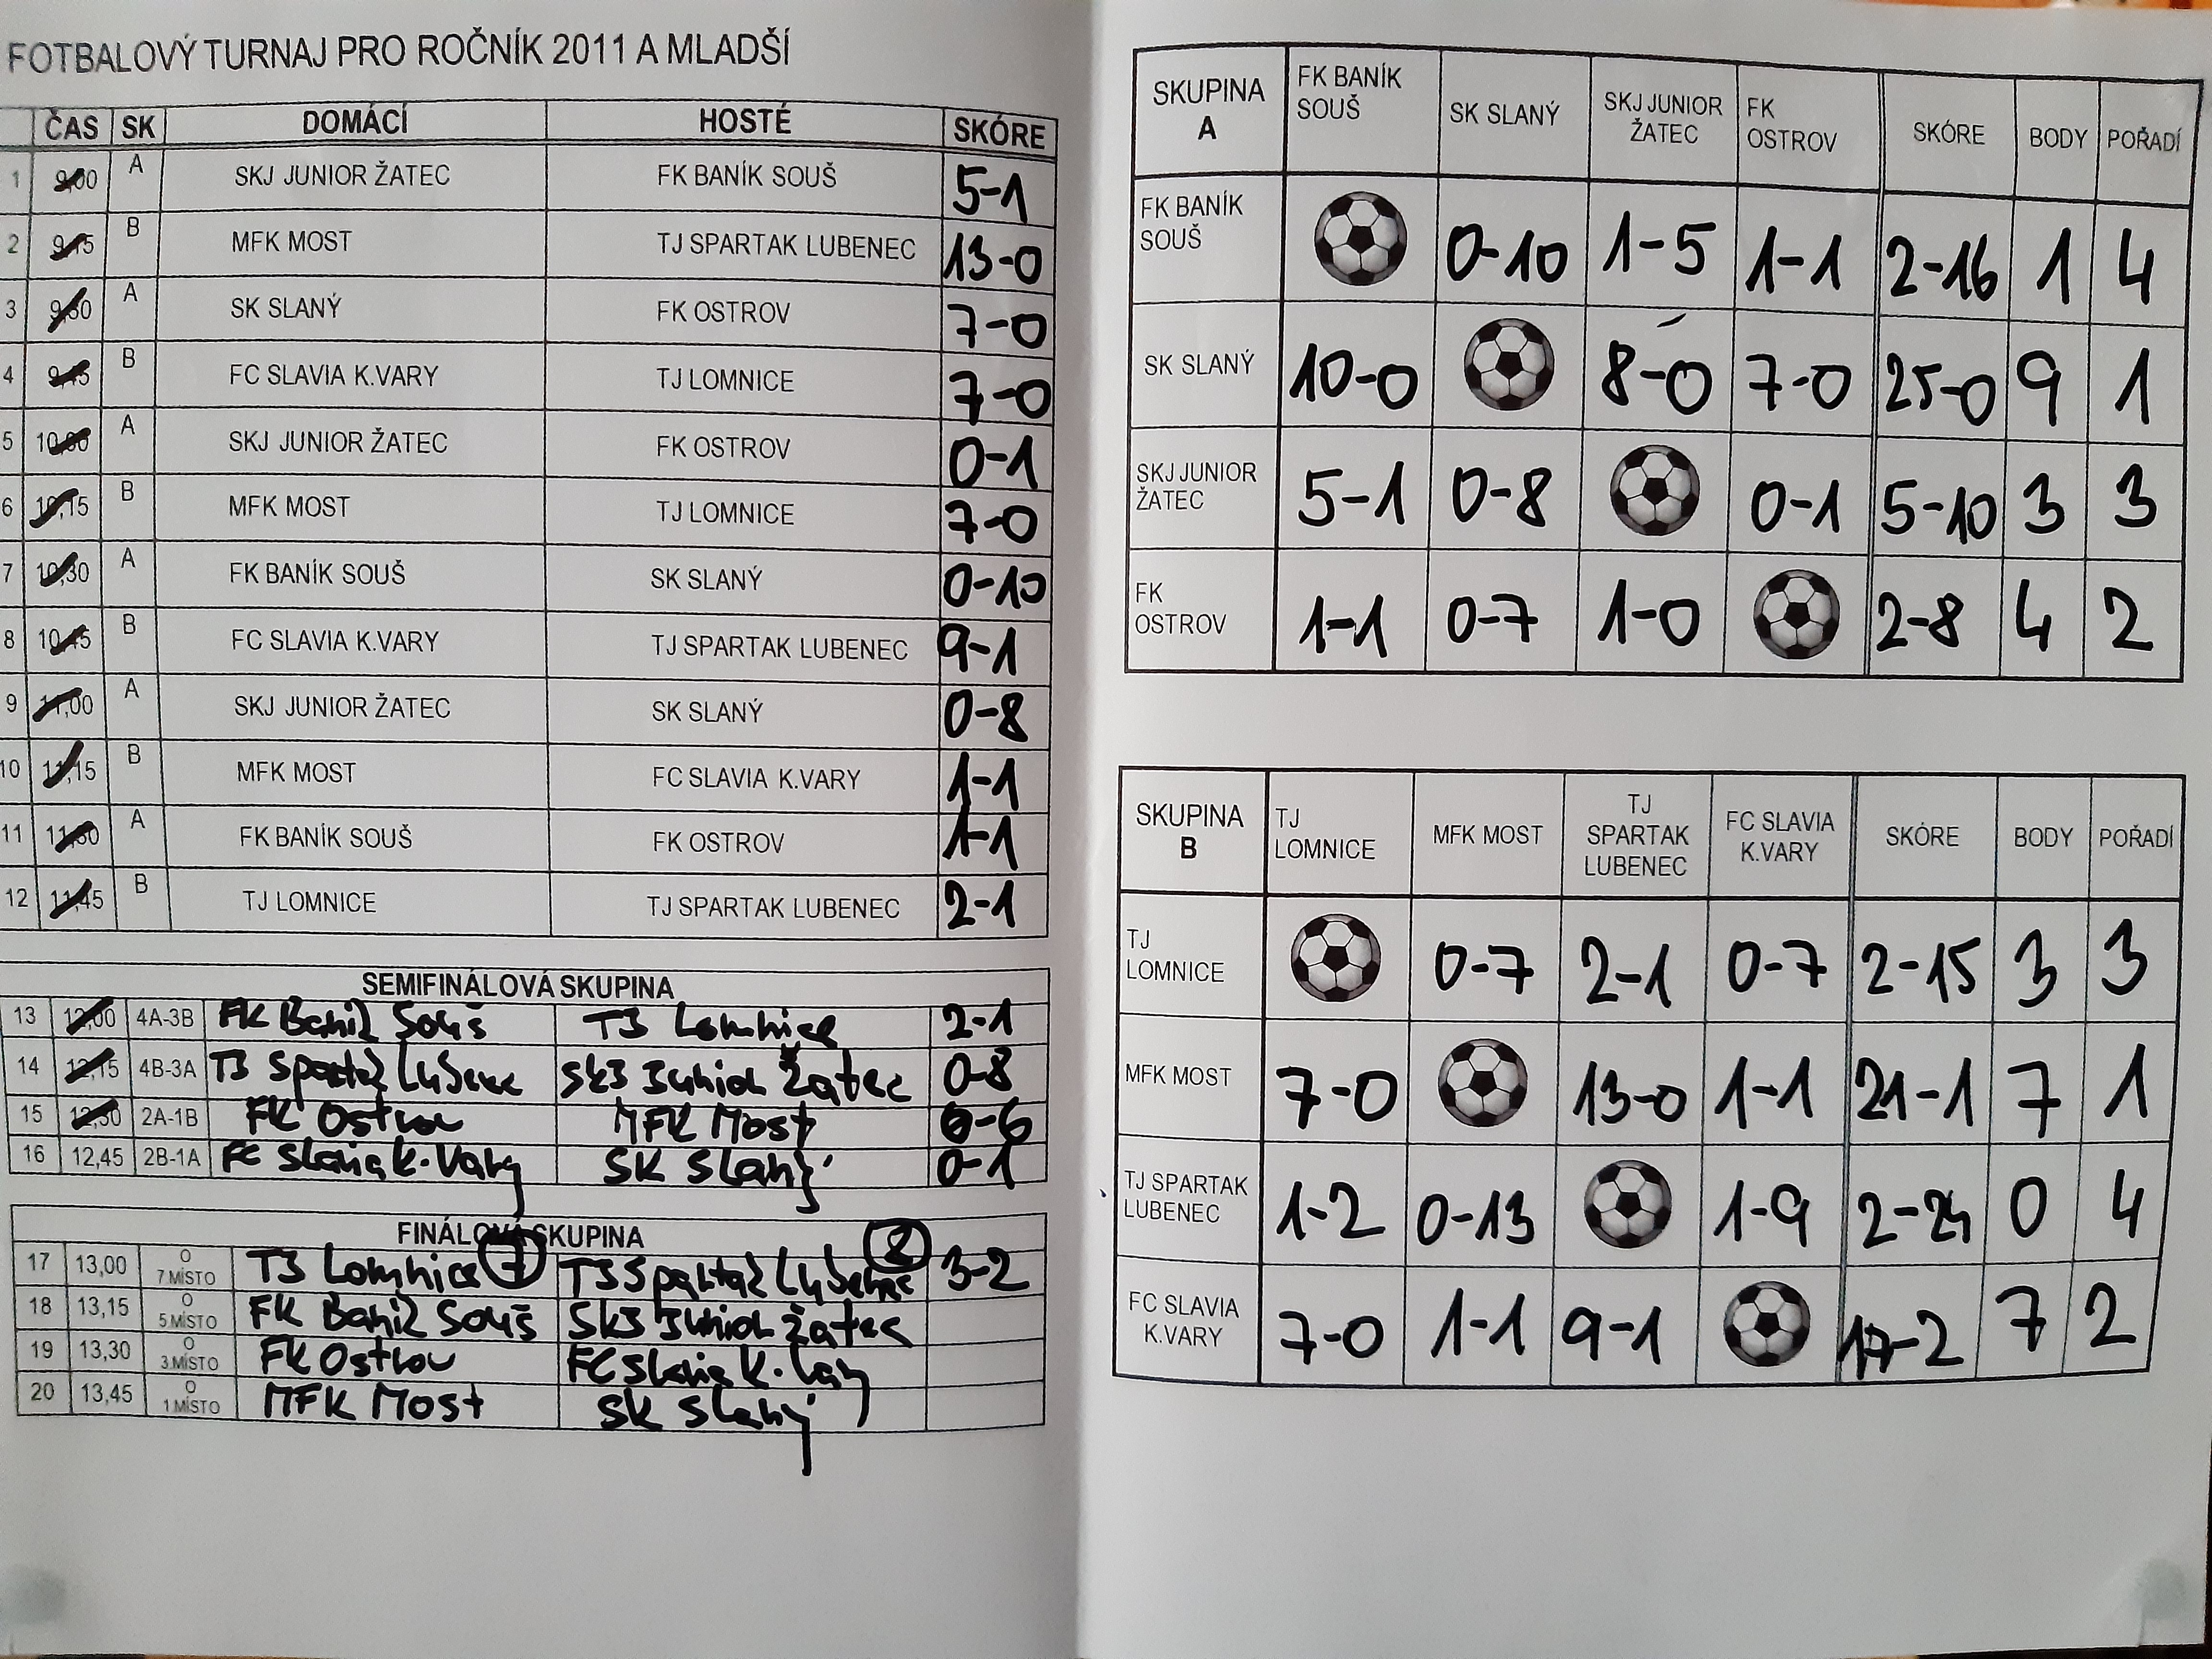 FOTBALOVÝ TURNAJ PRO ROČNÍK 2011 A MLADŠÍ
ČAS SK DOMÁCÍ HOSTÉ SKÓRE
1 9,00 A SKJ JUNIOR ŽATEC FK BANÍK SOUŠ 5-1
2 9,15 B MFK MOST TJ SPARTAK LUBENEC 13-0
3 9,30 A SK SLANÝ FK OSTROV 7-0
4 9,45 B FC SLAVIA K.VARY TJ LOMNICE 7-0
5 10,00 A SKJ JUNIOR ŽATEC FK OSTROV 0-1
6 10,15 B MFK MOST TJ LOMNICE 7-0
7 10,30 A FK BANÍK SOUŠ SK SLANÝ 0-10
8 10,45 B FC SLAVIA K.VARY TJ SPARTAK LUBENEC 9-1
9 11,00 A SKJ JUNIOR ŽATEC SK SLANÝ 0-8
10 11,15 B MFK MOST FC SLAVIA K.VARY 1-1
11 11,30 A FK BANÍK SOUŠ FK OSTROV 1-1
12 11,45 B TJ LOMNICE TJ SPARTAK LUBENEC 2-1
SEMIFINÁLOVÁ SKUPINA
13 12,00 4A-3B FK Baník Souš TJ Lomnice 2-1
14 12,15 4B-3A TJ Spartak Lubenec SKJ Junior Žatec 0-8
15 12,30 2A-1B FK Ostrov MFK Most 0-6
16 12,45 2B-1A FC Slavia K.Vary SK Slaný 0-1
FINÁLOVÁ SKUPINA
17 13,00 O 7.MÍSTO TJ Lomnice 7 TJ Spartak Lubenec 8 3-2
18 13,15 O 5.MÍSTO FK Baník Souš SKJ Junior Žatec
19 13,30 O 3.MÍSTO FK Ostrov FC Slavia K.Vary
20 13,45 O 1.MÍSTO MFK Most SK Slaný
SKUPINA A FK BANÍK SOUŠ SK SLANÝ SKJ JUNIOR ŽATEC FK OSTROV SKÓRE BODY POŘADÍ
FK BANÍK SOUŠ 0-10 1-5 1-1 2-16 1 4
SK SLANÝ 10-0 8-0 7-0 25-0 9 1
SKJ JUNIOR ŽATEC 5-1 0-8 0-1 5-10 3 3
FK OSTROV 1-1 0-7 1-0 2-8 4 2
SKUPINA B TJ LOMNICE MFK MOST TJ SPARTAK LUBENEC FC SLAVIA K.VARY SKÓRE BODY POŘADÍ
TJ LOMNICE 0-7 2-1 0-7 2-15 3 3
MFK MOST 7-0 13-0 1-1 21-1 7 1
TJ SPARTAK LUBENEC 1-2 0-13 1-9 2-24 0 4
FC SLAVIA K.VARY 7-0 1-1 9-1 17-2 7 2